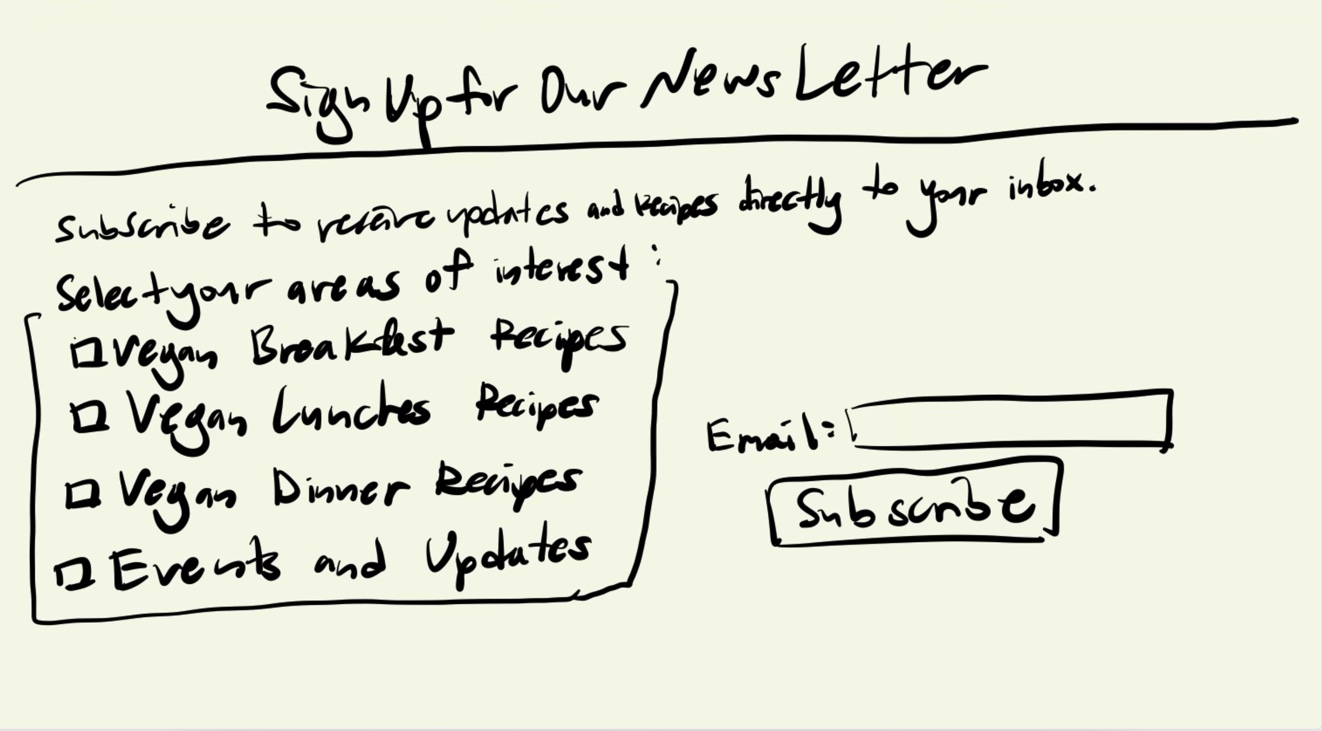 Sign Up for Our NewsLetter
Subscribe to receive updates and recipes directly to your inbox.
Select your areas of interest:
Vegan Breakfast Recipes
Vegan Lunches Recipes
Vegan Dinner Recipes
Events and Updates
Email:
Subscribe